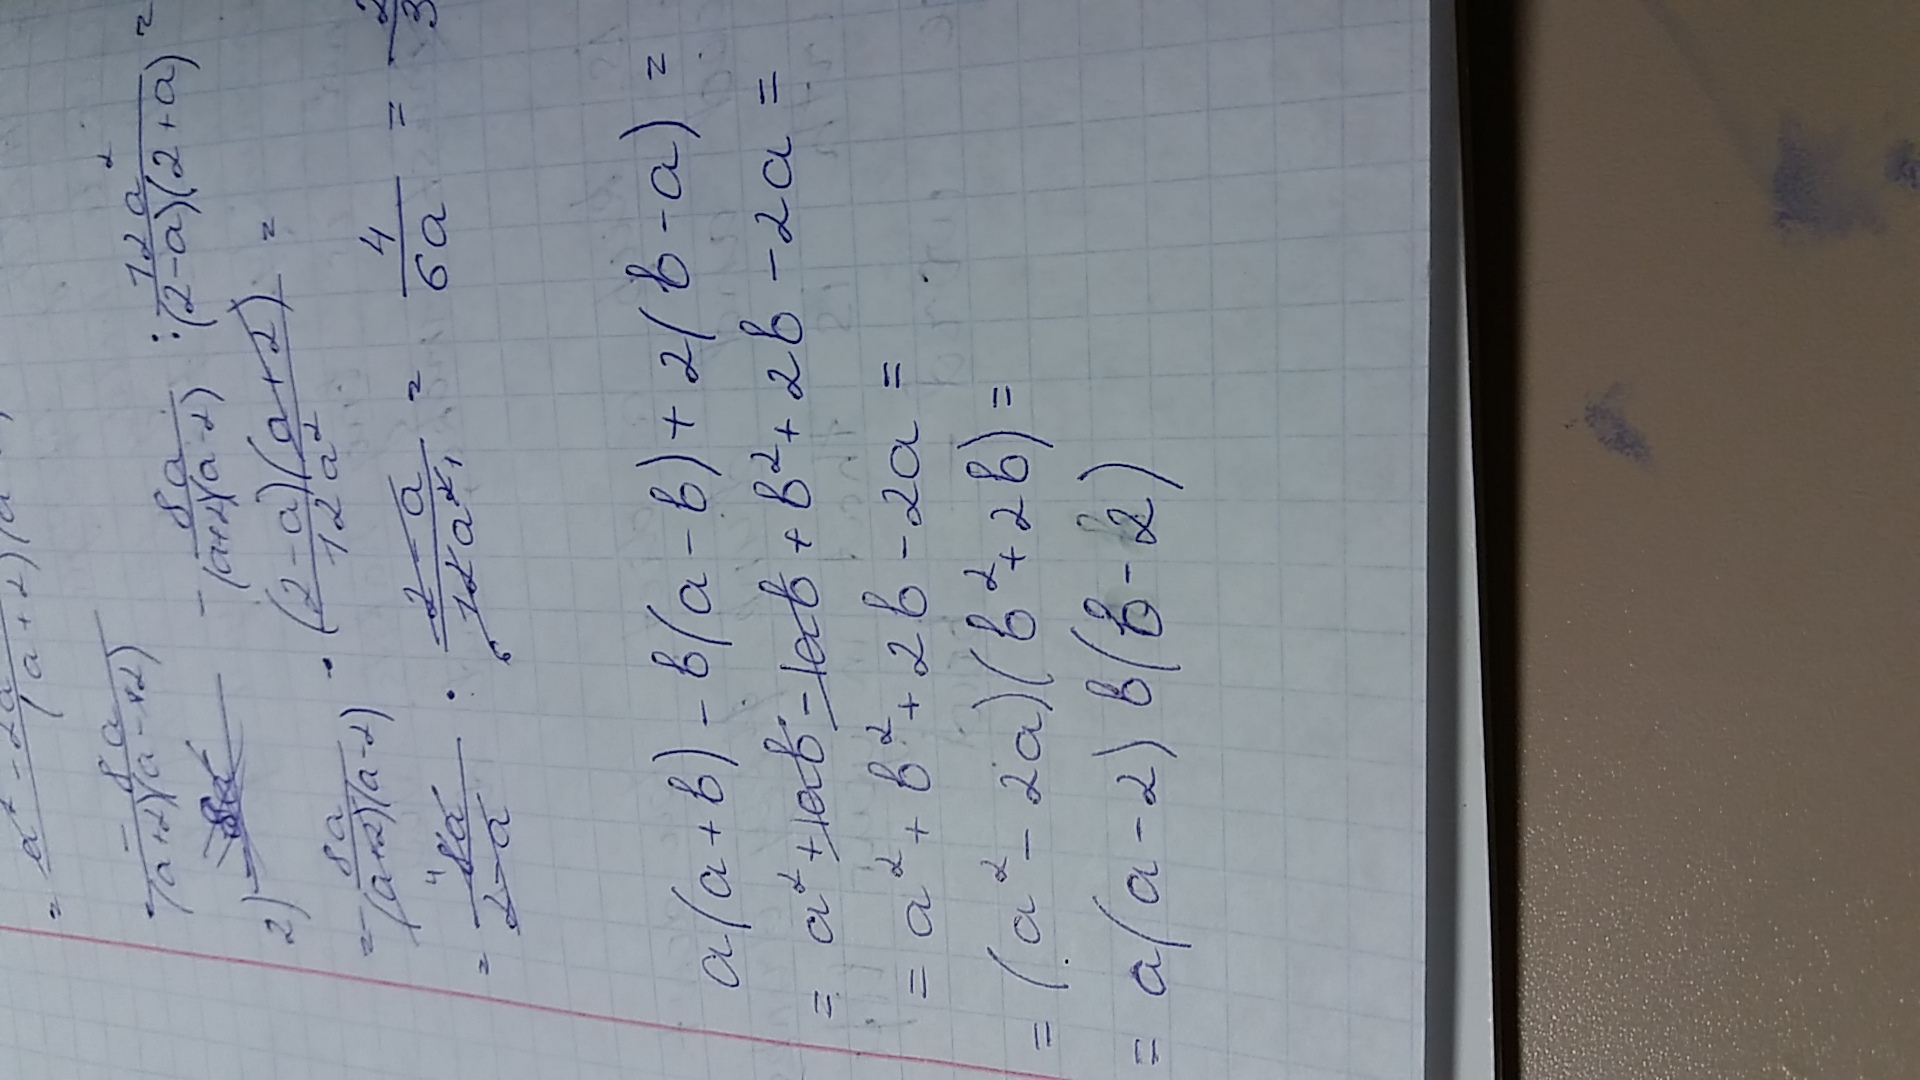 - 8a / (a+2)(a-2)
- 8a / (a+2)(a-2) : 12a² / (2-a)(2+a) =
2)
= 8a / (a+2)(a-2) · (2-a)(a+2) / 12a² =
= 8a / 2-a · 2-a / 12a² = 4 / 6a = 2 / 3
a(a+b)-b(a-b)+2(b-a)=
= a²+ab-ab+b²+2b-2a=
= a²+b²+2b-2a=
= (a²-2a)(b²+2b)=
= a(a-2)b(b-2)